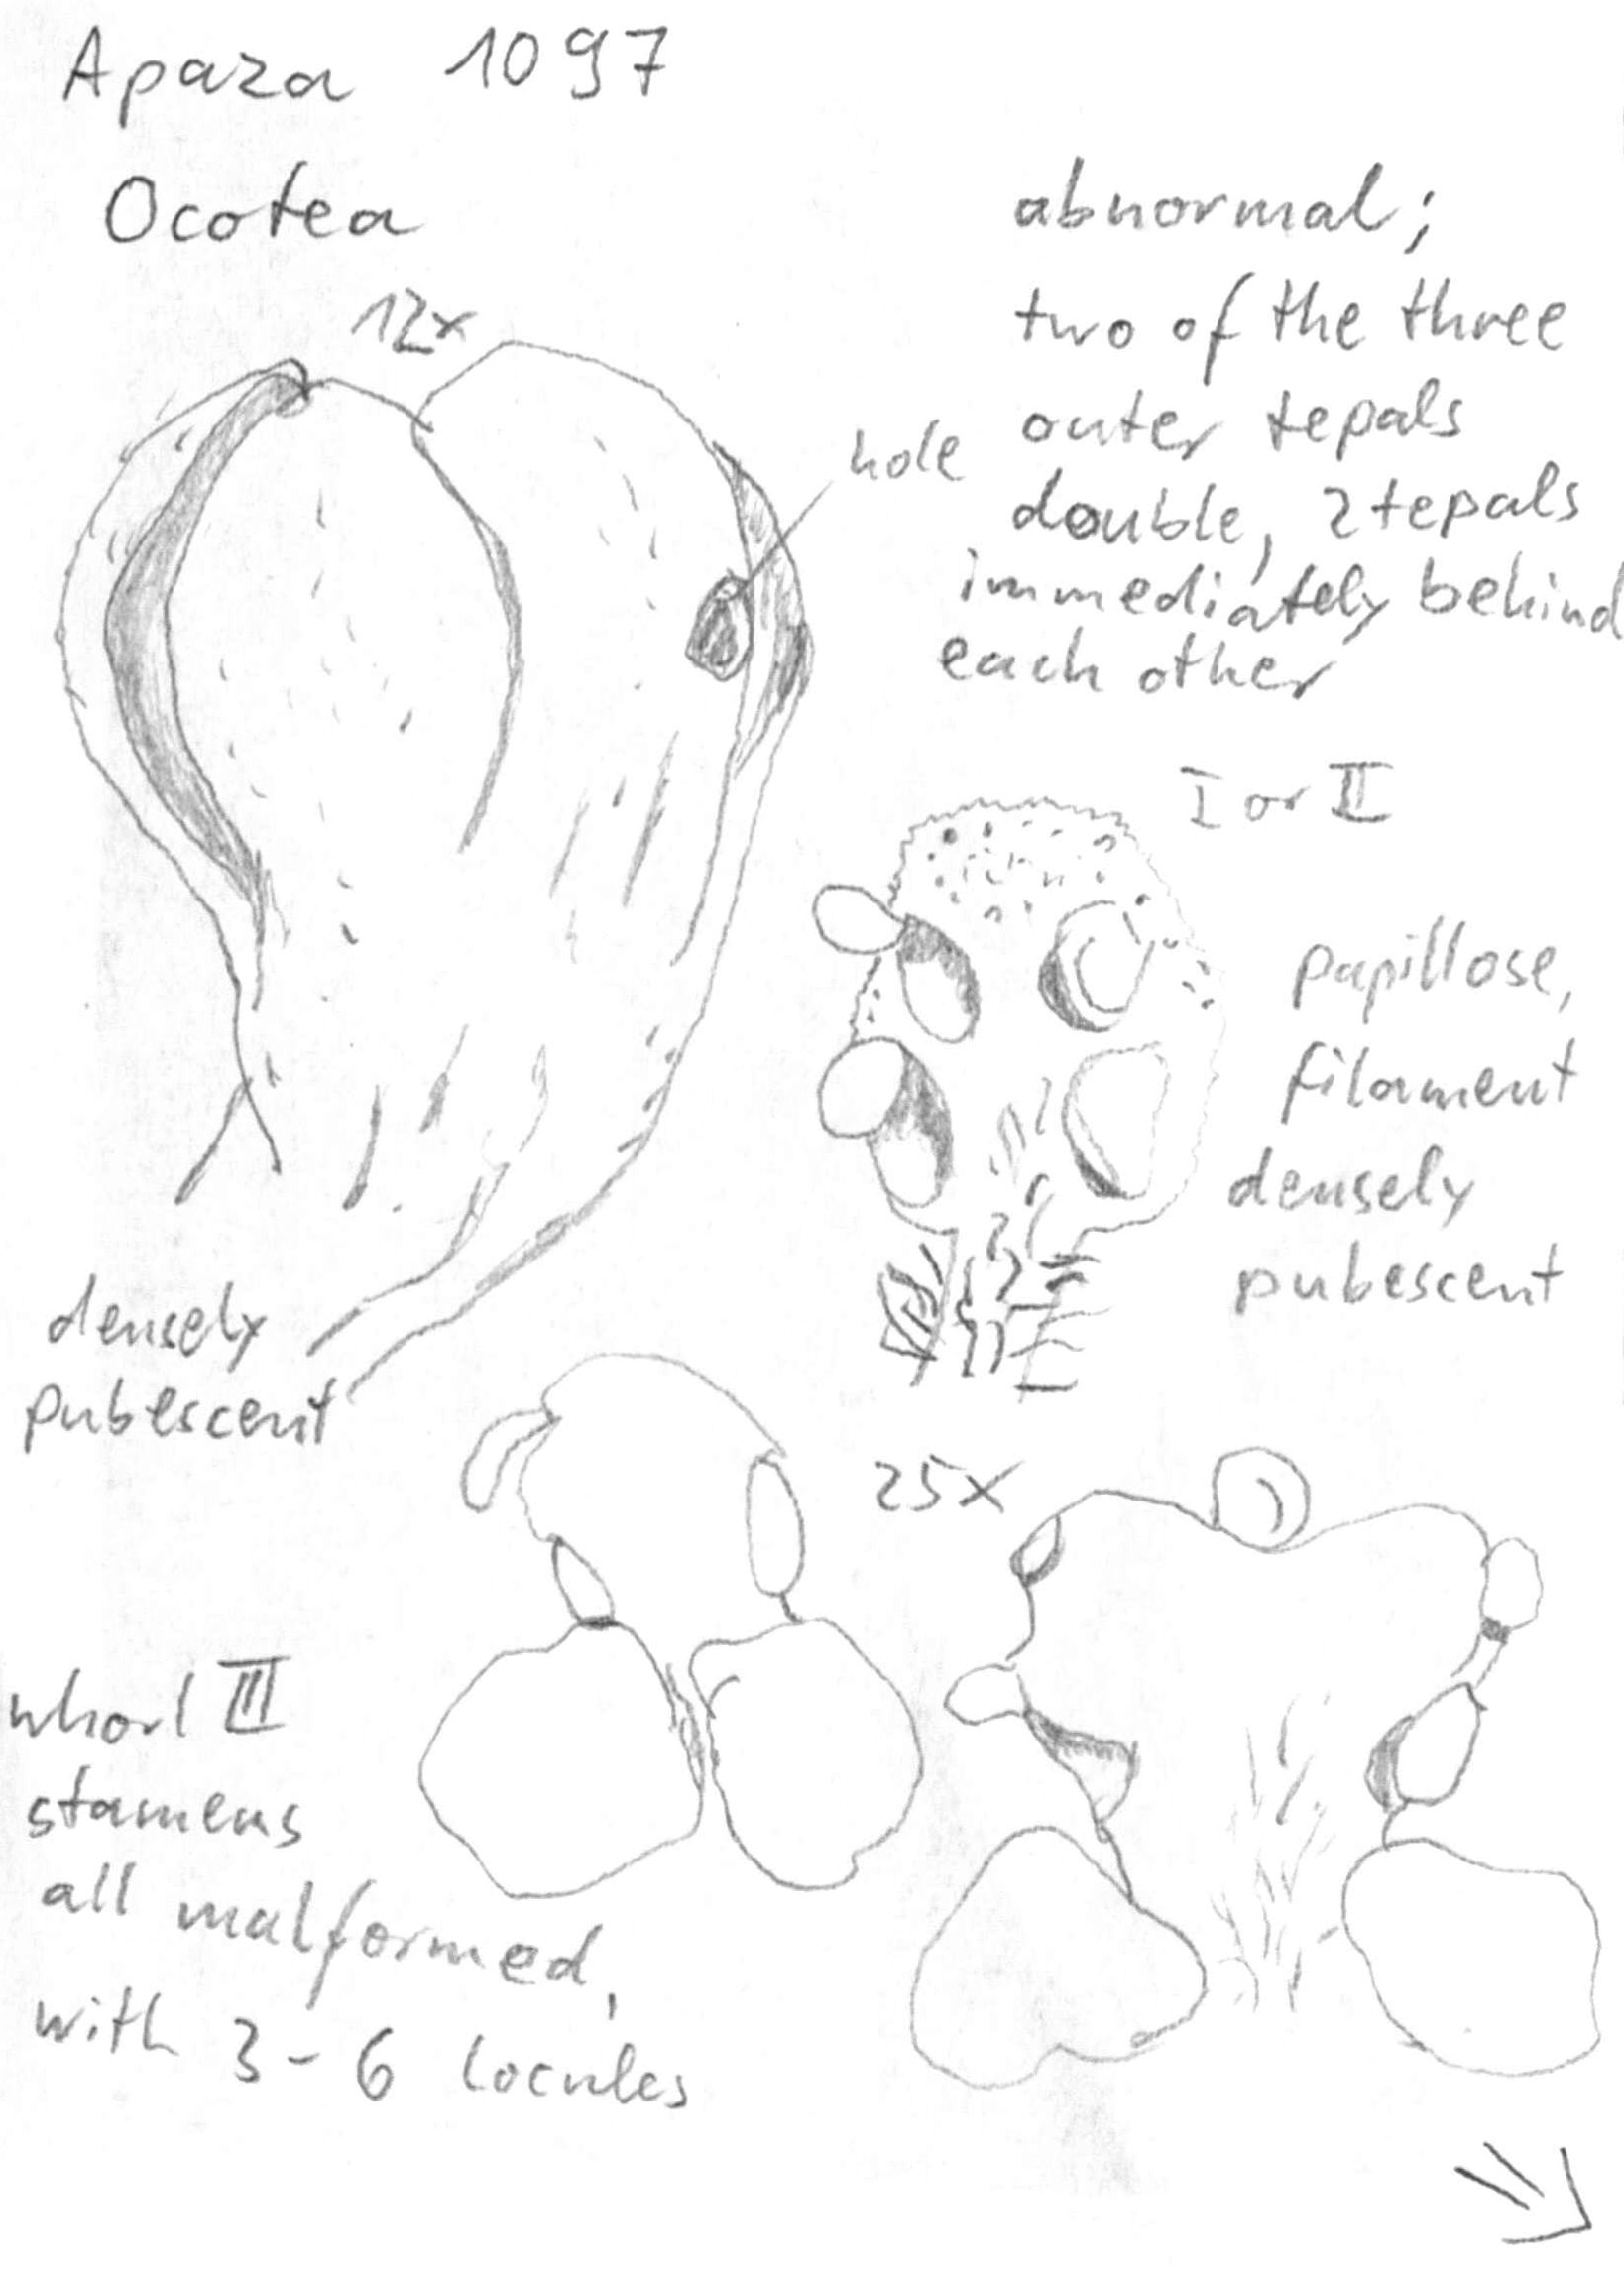 Apaza 1097
Ocotea
12x
hole
abnormal;
two of the three
outer tepals
double, 2 tepals
immediately behind
each other
I or II
papillose,
filament
densely
pubescent
densely
pubescent
25x
whorl III
stamens
all malformed,
with 3-6 locules